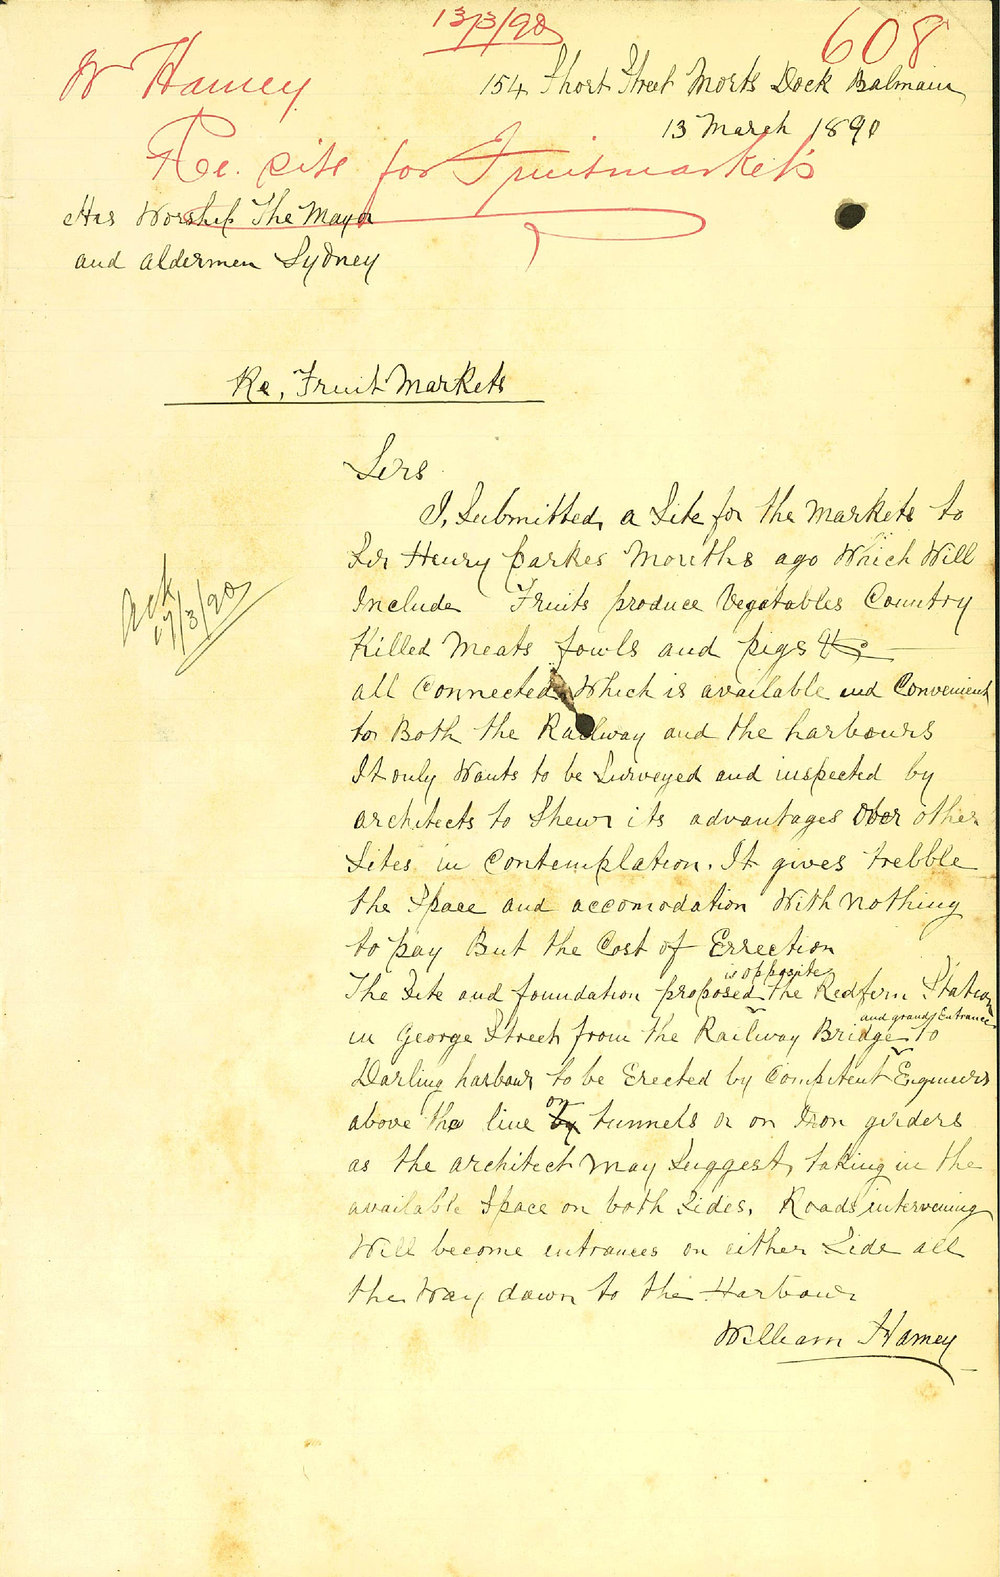 13/3/90
608
W Hamey
154 Short Street Morts Dock Balmain
13 March 1890
Re. site for Fruitmarkets
His Worship The Mayor
and aldermen Sydney
Re, Fruit Markets
Sirs
I, Submitted, a Site for the Markets to
Sir Henry Parkes Months ago Which Will
Include Fruits produce Vegatables Country
Killed Meats fowls and pigs &c
all Connected Which is available and Convenient
to Both the Railway and the harbours
It only Wants to be Surveyed and inspected by
architects to Shew its advantages over other
Sites in Contemplation. It gives trebble
the Space and accomodation With Nothing
to pay But the Cost of Errection
The Site and foundation proposed is opposite the Redfern Station
in George Street from the Railway Bridge and grand Entrance to
Darling harbour to be Erected by Competent Engineers
above the line by on tunnels or on Iron girders
as the architect May Suggest, taking in the
available Space on both Sides, Roads intervening
Will become entrances on either Side all
the Way down to the Harbour
William Hamey
Ack
17/3/90